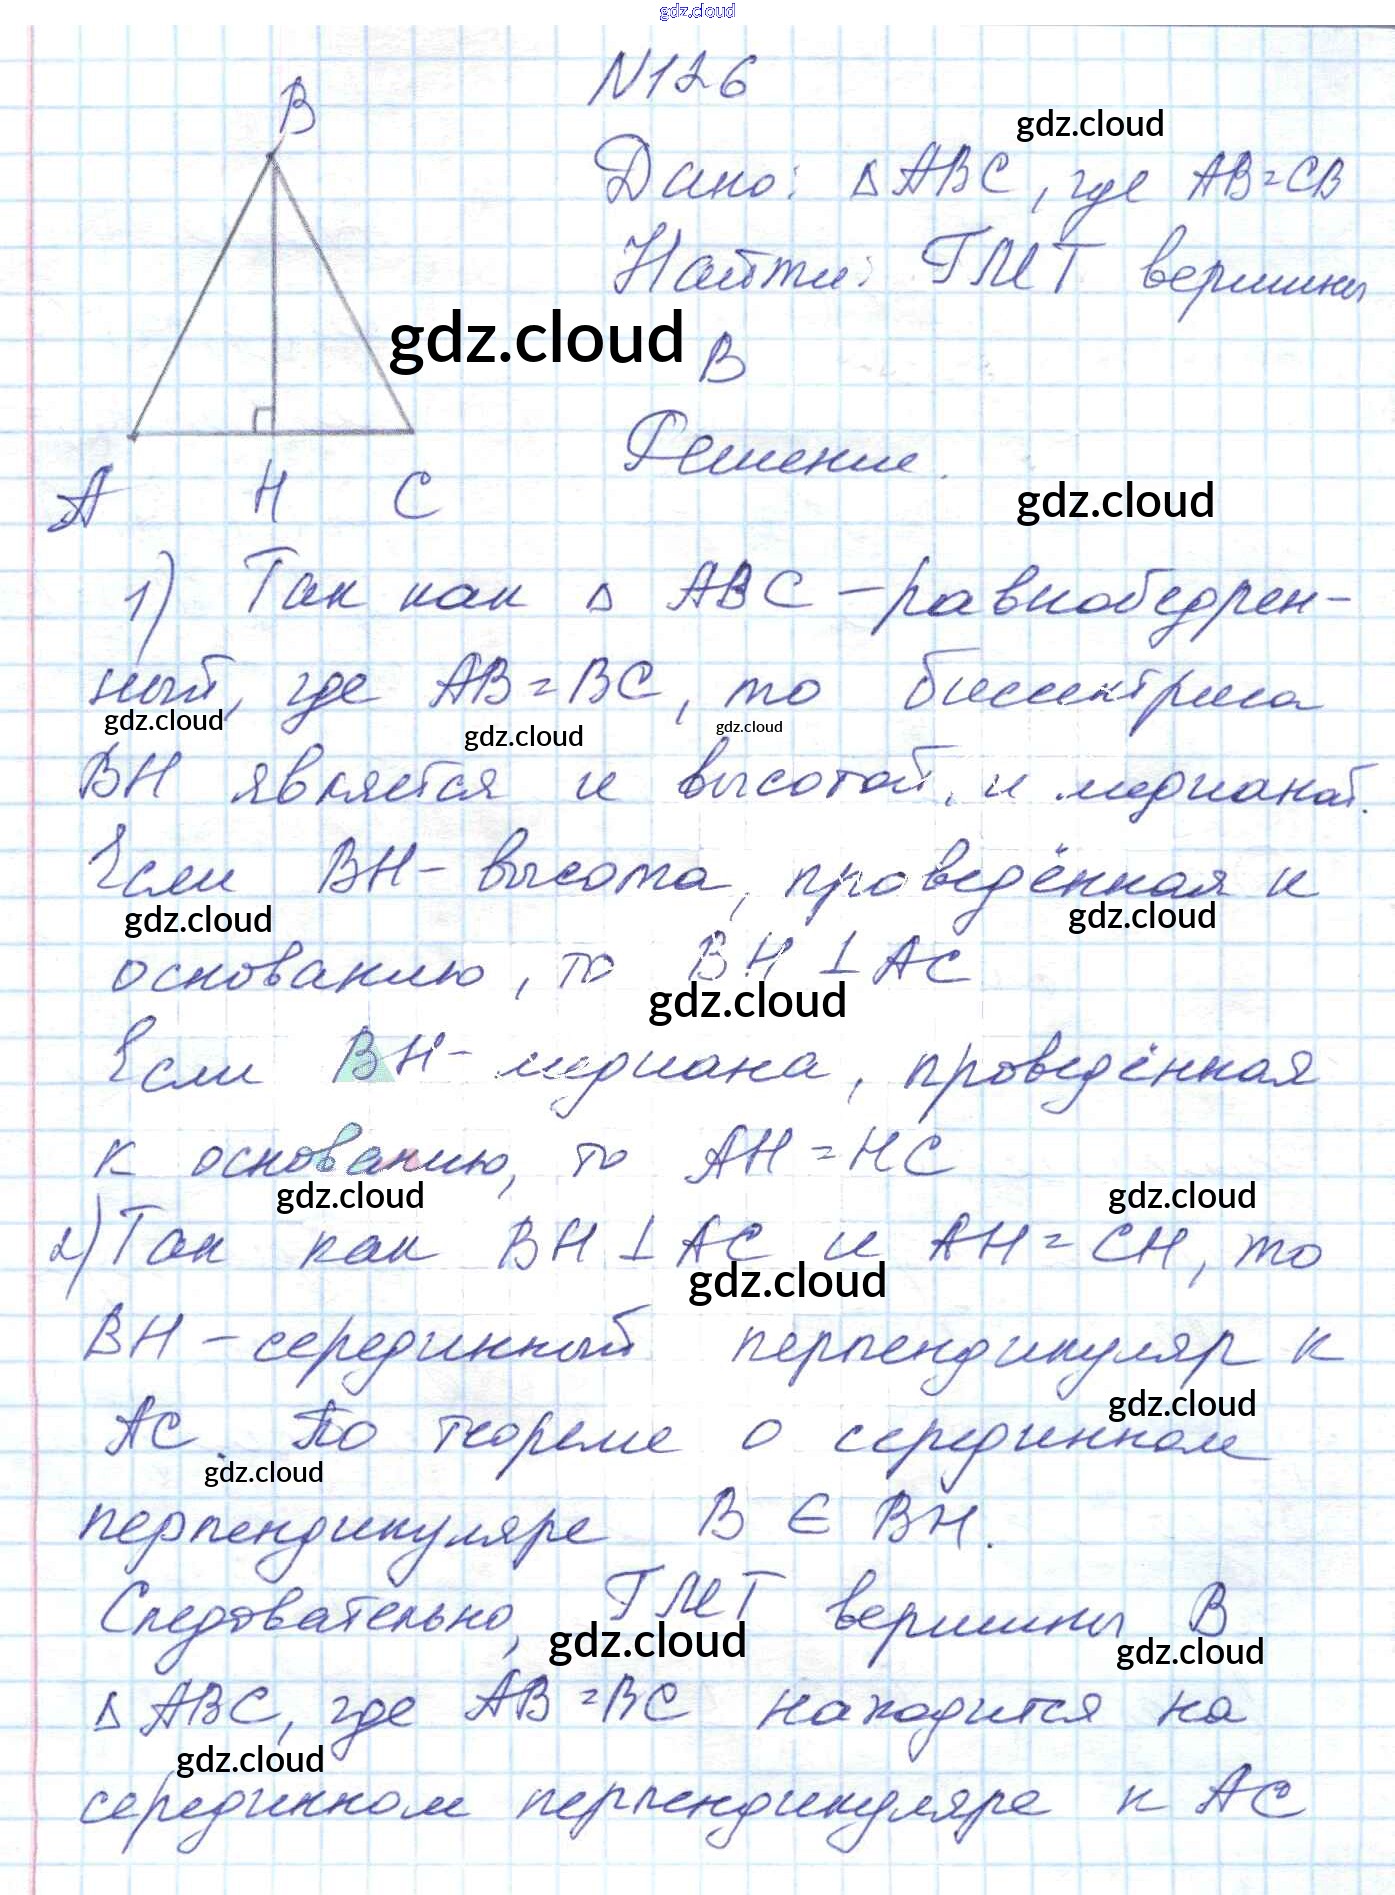 gdz.cloud
N126
B
gdz.cloud
Дано: △ ABC, где AB=CB
Найти: ГМТ вершины
gdz.cloud
B
Решение.
A H C
gdz.cloud
1) Так как △ ABC – равнобедрен-
ный, где AB=BC, то биссектриса
gdz.cloud gdz.cloud gdz.cloud
BH является и высотой, и медианой.
Если BH – высота, проведённая к
gdz.cloud gdz.cloud
основанию, то BH ⊥ AC
gdz.cloud
Если BH – медиана, проведённая
к основанию, то AH = HC
gdz.cloud gdz.cloud
2) Так как BH ⊥ AC и AH = CH, то
gdz.cloud
BH – серединный перпендикуляр к
gdz.cloud
AC. По теореме о серединном
gdz.cloud
перпендикуляре B ∈ BH.
Следовательно, ГМТ вершины B
gdz.cloud gdz.cloud
△ ABC, где AB = BC находится на
gdz.cloud
серединном перпендикуляре к AC